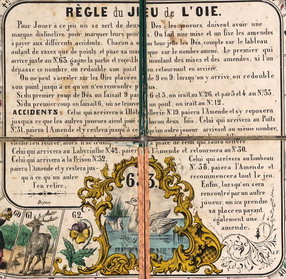 RÈGLE du JEU de L'OIE.
Pour Jouer à ce jeu on se sert de deux Dés, les joueurs doivent avoir une
marque distinctive, pour marquer leurs points. On fait une mise et on fixe les amendes
a payer aux différents accidents. Chacun a son tour jette les Dés, compte sur le tableau
autant de cases que de points et place sa marque sur le nombre amené. Le premier qui
arrive juste au N°.63, gagne la partie et les mises et des amendes, si l'on
dépasse ce nombre on redouble son point en retournant en arrière.
On ne peut s'arrêter sur les Oies placées de 9 en 9: lorsqu'on y arrive, on redouble
son point jusqu'à ce qu'on n'en rencontre
Si du premier coup de Dés on faisait 9 par 6 et 5, on irait au N°.26, et par 5 et 4 au N°.53.
Si du premier coup on faisait 6, où se trouve un pont, on irait au N°.12.
ACCIDENTS : Celui qui arrivera à l'Hôtellerie N°.19 paiera l'Amende et y reposera
jusqu'à ce que les autres joueurs aient joué deux fois. Celui qui arrivera au Puits
N°.31, paiera l'Amende et y restera jusqu'à ce qu'un autre joueur arrivant au même nombre,
Celui qui arrivera au Labyrinthe N°.42, paiera l'Amende et retournera au N°.30.
Celui qui arrivera à la Prison N°.52,
paiera l'Amende et y restera jus-
qu'à ce qu'un autre
l'en retire.
Celui qui arrivera au tombeau
N°. 58, paiera l'Amende et
recommencera tout le jeu.
Enfin, lorsqu'on sera
rencontré par un autre
joueur, on ira prendre
sa place en payant
également une
amende.
61
62
63